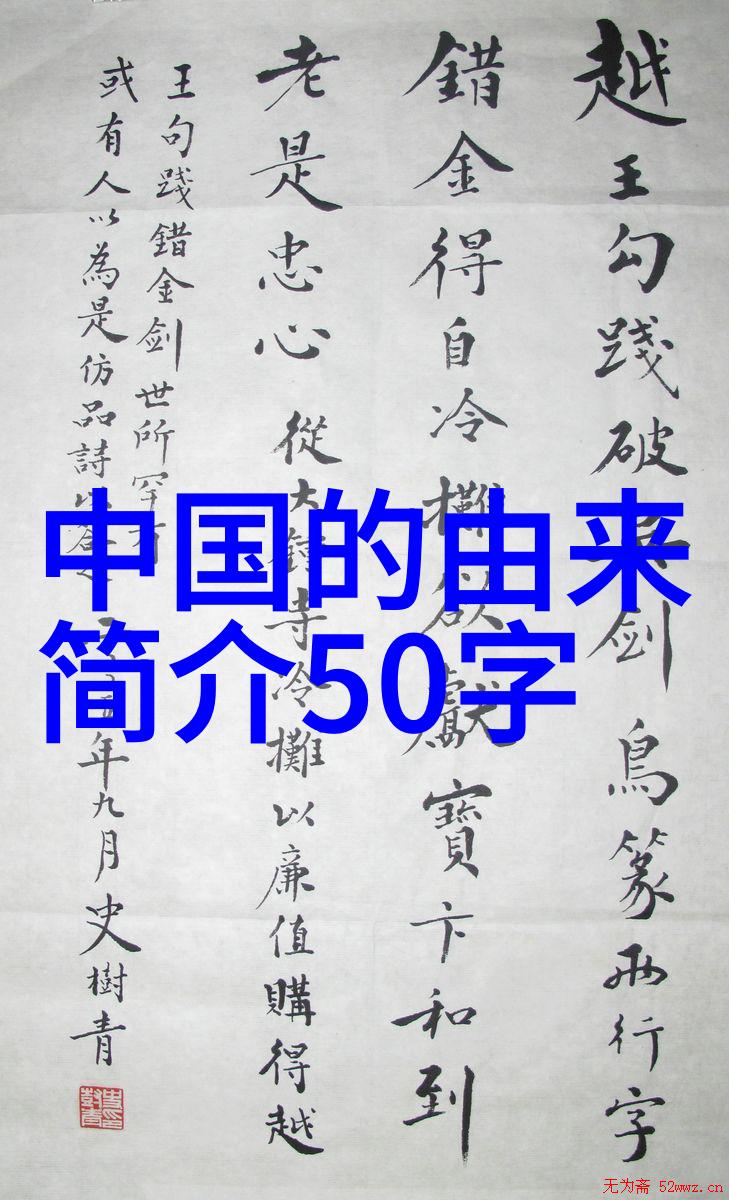 越王勾踐破剑鳥篆兩行字
錯金得自冷攤欲獻寶卞和到
老是忠心 從大鐘寺冷攤以廉值購得越
王句踐錯金剑世所罕有
或有人以為是仿品詩以五年九月史樹青
中国的由来
简介50字
无为斋 52wwz.cn